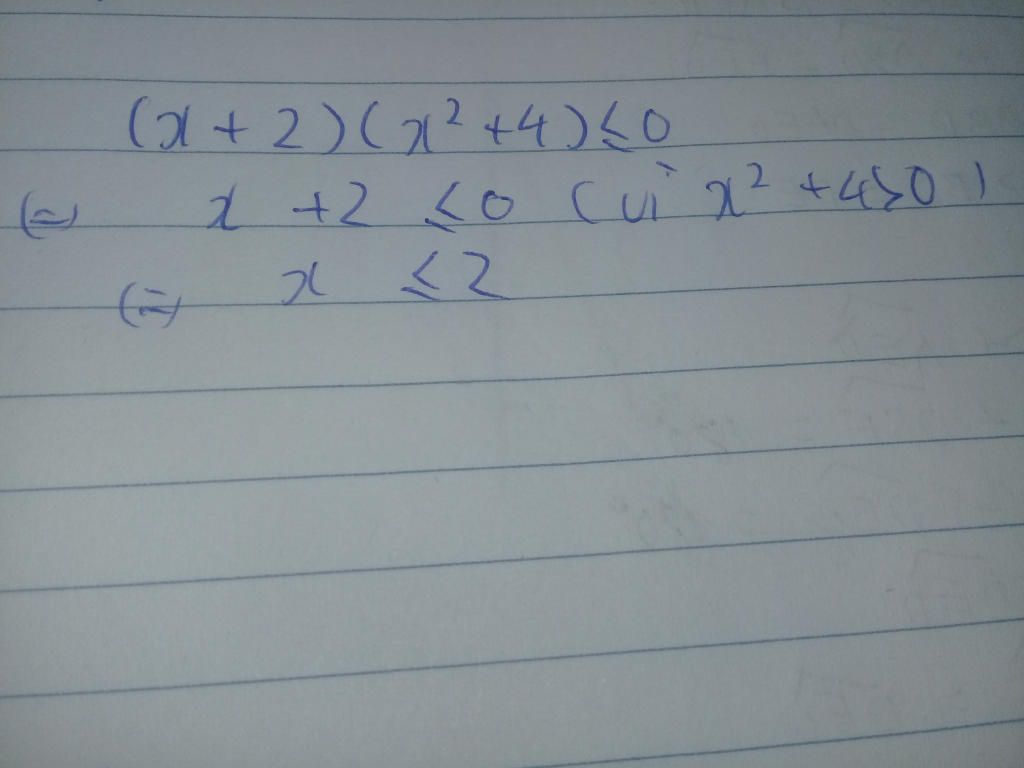 (x + 2)(x² + 4) ≤ 0
(=) x + 2 ≤ 0 (vì x² + 4 > 0)
(=) x ≤ 2